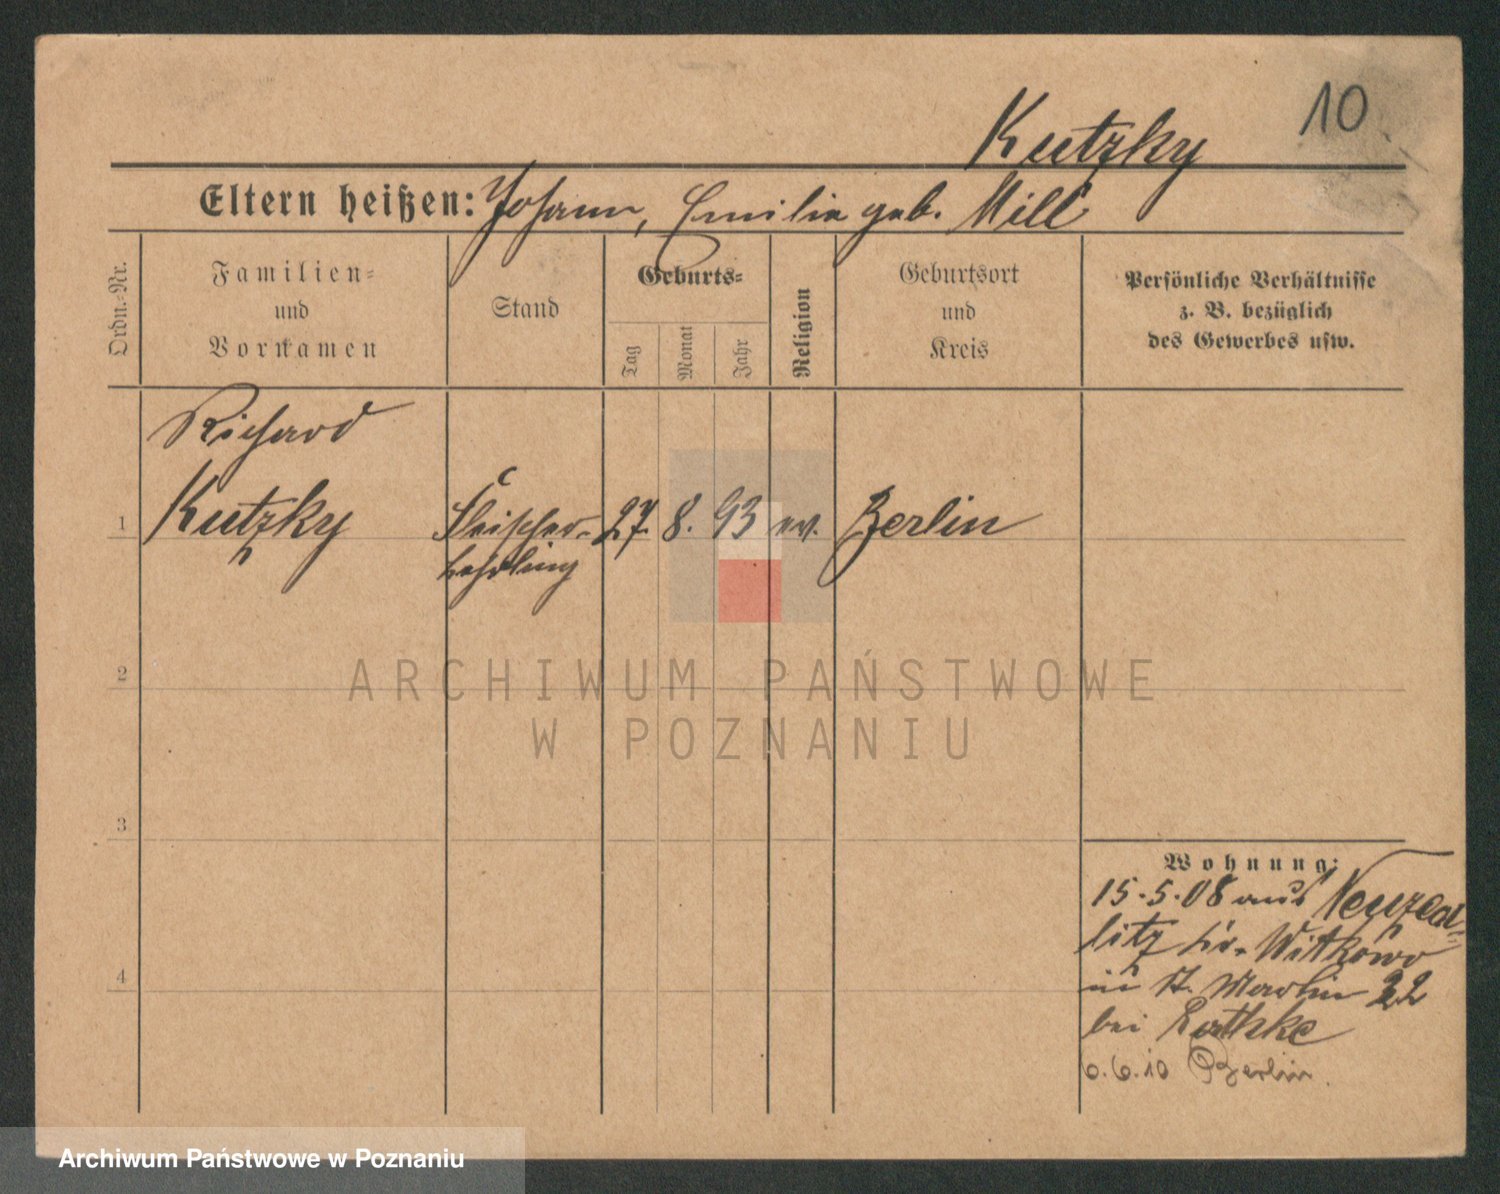 10
Kutzky
Eltern heißen: Johann, Emilie geb. Mill
Ordn.-Nr.
Familien-
und
Vornamen
Stand
Geburts-
Tag
Monat
Jahr
Religion
Geburtsort
und
Kreis
Persönliche Verhältnisse
z. B. bezüglich
des Gewerbes usw.
Richard
1 Kutzky Fleischer- 27. 8. 93 ev. Berlin
lehrling
2
ARCHIWUM PAŃSTWOWE
W POZNANIU
3
4
Wohnung:
15.5.08 aus
litz Kr. Witkowo
in St. Martin 22
bei
6.6.10 Berlin.
Archiwum Państwowe w Poznaniu